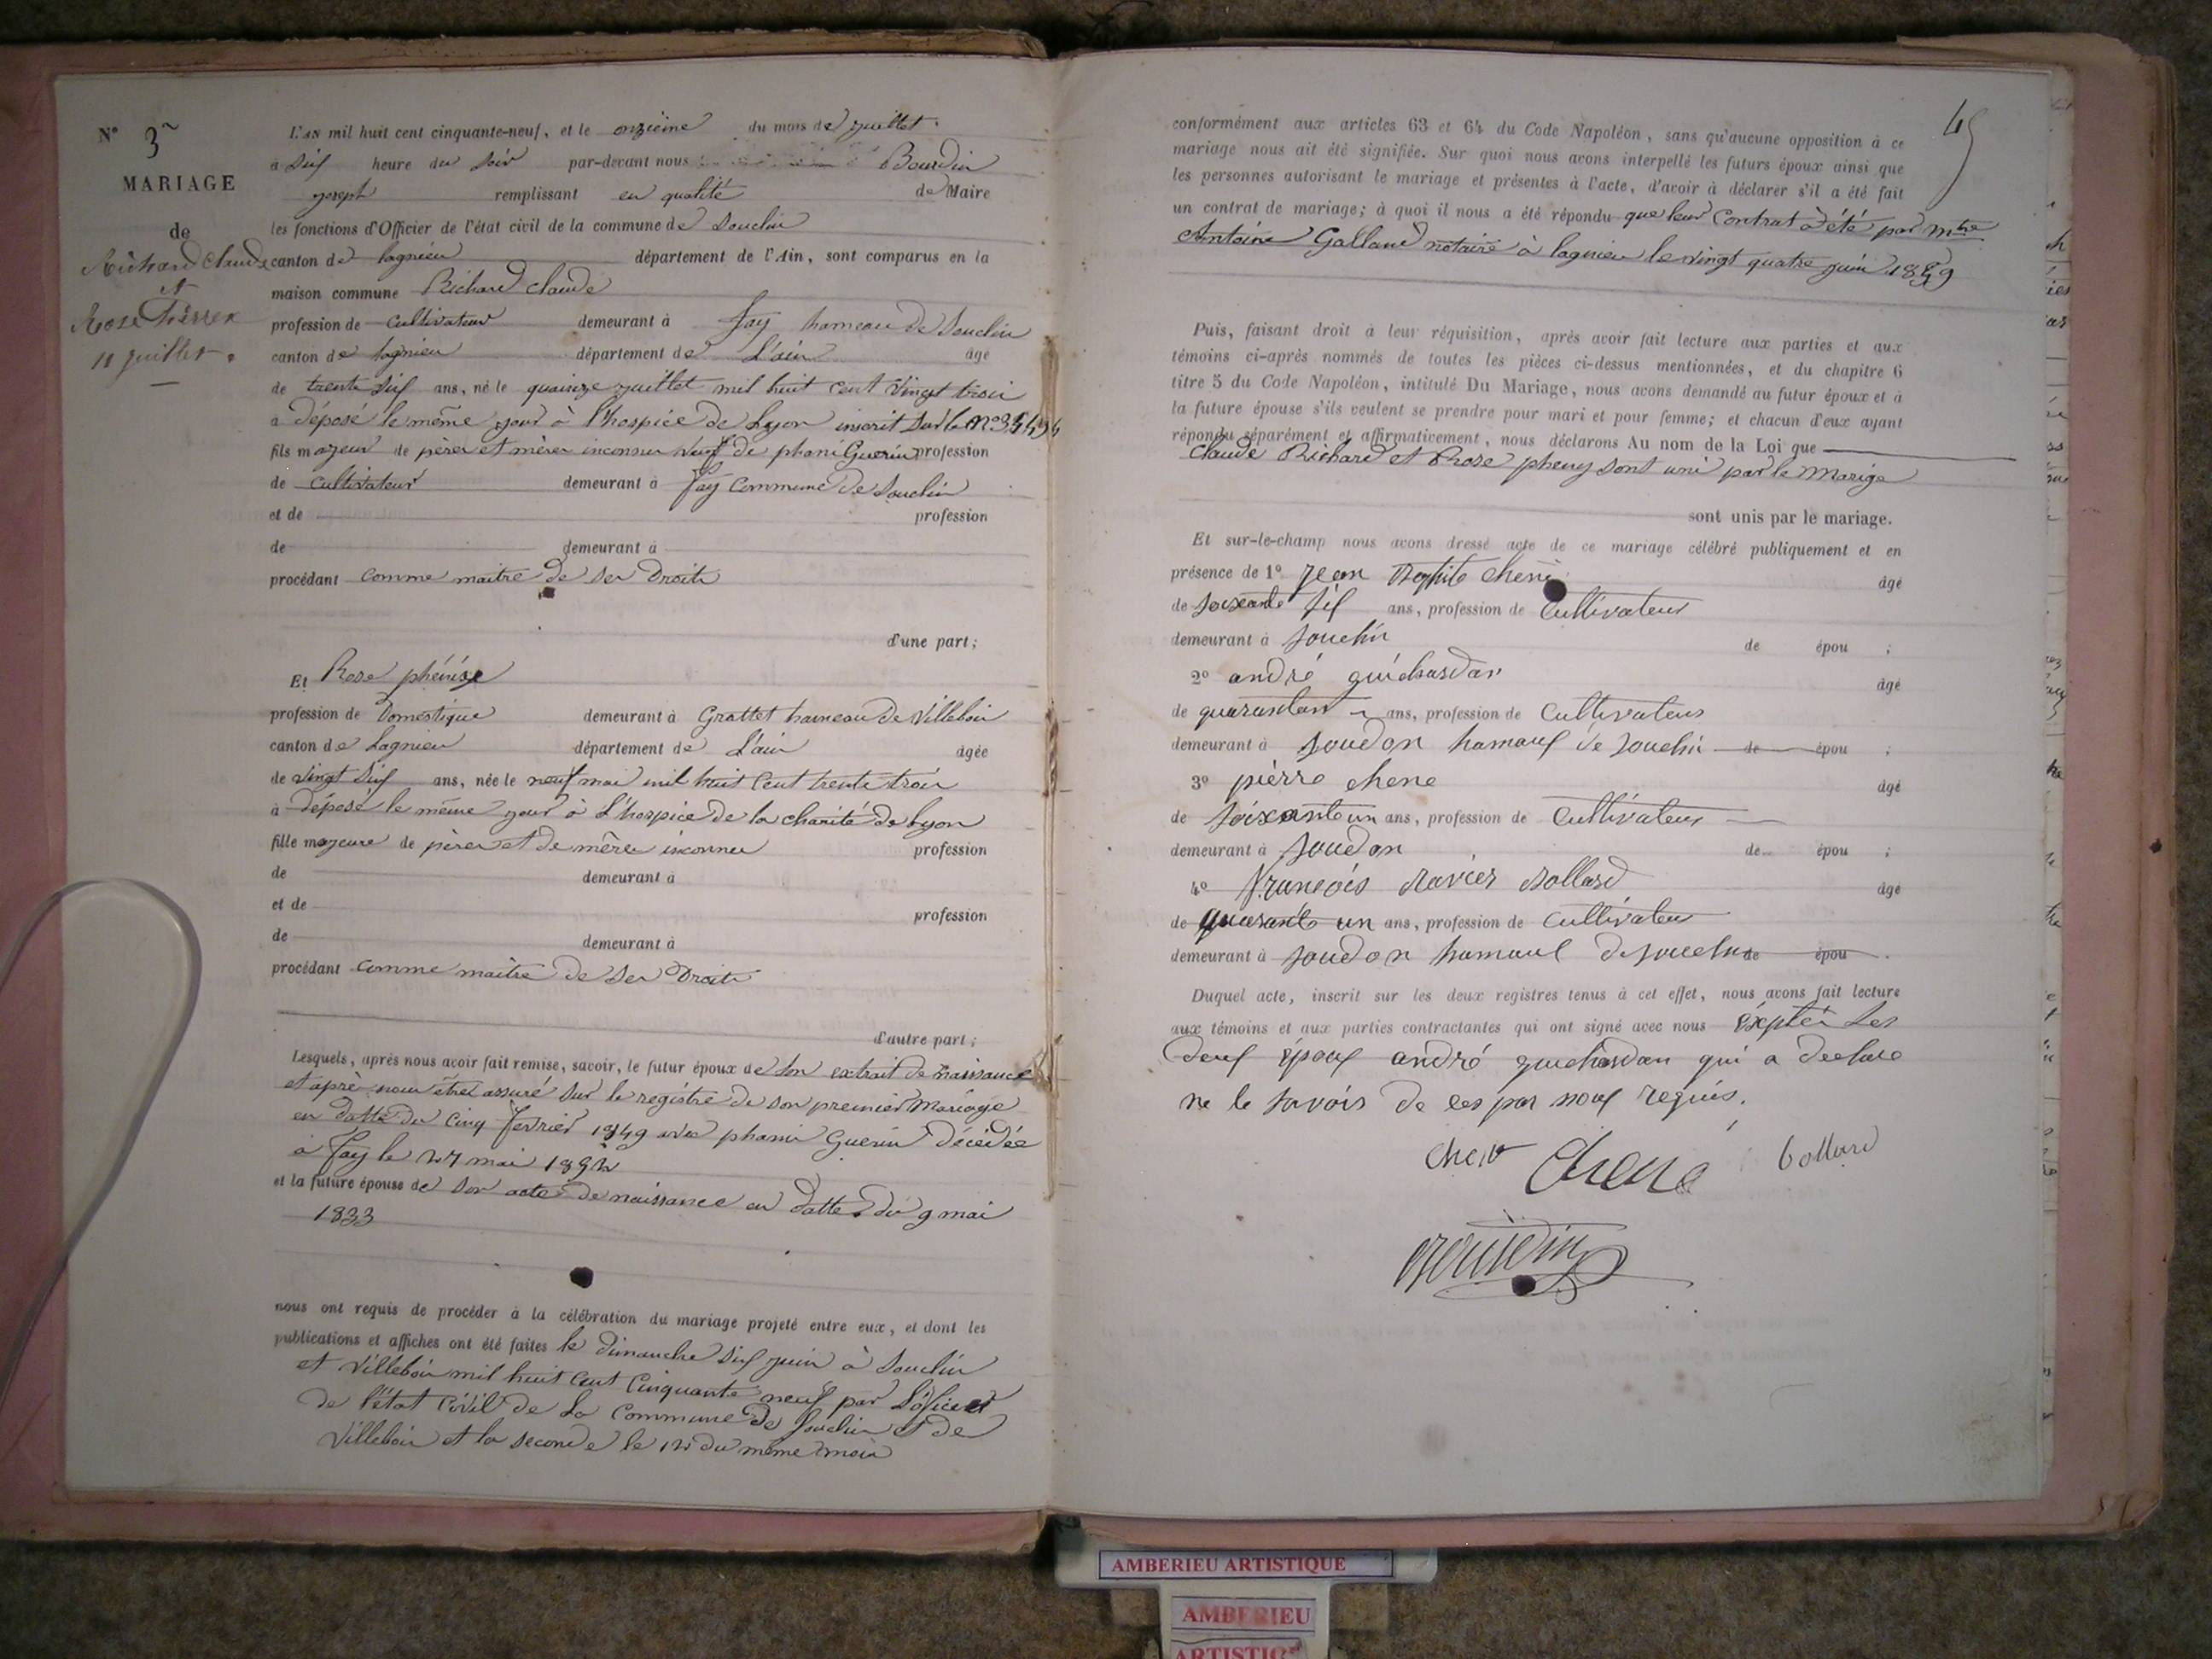 N° 3
MARIAGE
de
Richard Claude
et
Rose
11 juillet.
L'AN mil huit cent cinquante-neuf, et le onzième du mois de juillet.
à six heure du soir par-devant nous Bourdin
joseph remplissant en qualité de Maire
les fonctions d'Officier de l'état civil de la commune de Souclin
canton de lagnieu département de l'Ain, sont comparus en la
maison commune Richard claude
profession de cultivateur demeurant à fay hameau de Souclin
canton de lagnieu département de L'ain âgé
de trente six ans, né le quainze juillet mil huit cent vingt trois
à déposé le même jour à l'hospice de Lyon inscrit sur le N°
fils majeur de pères et mères inconnus veuf de phani Guerin profession
de cultivateur demeurant à fay commune de Souclin
et de profession
de demeurant à
procédant comme maitre de ses Droits
d'une part;
Et Rose
profession de Domestique demeurant à Grattet hameau de Villebois
canton de Lagnieu département de L'ain âgée
de vingt six ans, née le neuf mai mil huit cent trente trois
à déposé le même jour à l'hospice de la charité de Lyon
fille majeure de pères et de mères inconnus profession
de demeurant à
et de profession
de demeurant à
procédant comme maitre de ses Droits
d'autre part;
Lesquels, après nous avoir fait remise, savoir, le futur époux de son extrait de naissance
et après nous être assuré sur le registre de son premier Mariage
en datte du cinq fevrier 1849 avec phanie Guerin Décédée
à fay le 27 mai
et la future épouse de son acte de naissance en datte du 9 mai
1833
nous ont requis de procéder à la célébration du mariage projeté entre eux, et dont les
publications et affiches ont été faites le dimanche six juin à Souclin
et Villebois mil huit cent cinquante neuf par L'oficier
de l'état Civil de La Commune de Souclin et de
Villebois et la seconde le 12 du même mois
45
conformément aux articles 63 et 64 du Code Napoléon, sans qu'aucune opposition à ce
mariage nous ait été signifiée. Sur quoi nous avons interpellé les futurs époux ainsi que
les personnes autorisant le mariage et présentes à l'acte, d'avoir à déclarer s'il a été fait
un contrat de mariage; à quoi il nous a été répondu que leur Contrat à été par Mtre
Antoine Galland notaire à lagnieu le vingt quatre juin 1859
Puis, faisant droit à leur réquisition, après avoir fait lecture aux parties et aux
témoins ci-après nommés de toutes les pièces ci-dessus mentionnées, et du chapitre 6
titre 5 du Code Napoléon, intitulé Du Mariage, nous avons demandé au futur époux et à
la future épouse s'ils veulent se prendre pour mari et pour femme; et chacun d'eux ayant
répondu séparément et affirmativement, nous déclarons Au nom de la Loi que
Claude Richard et Rose pheny sont uni par le Marige
sont unis par le mariage.
Et sur-le-champ nous avons dressé acte de ce mariage célébré publiquement et en
présence de 1° jean Baptite chene âgé
de soixante six ans, profession de Cultivateur
demeurant à souclin de épou ;
2° andré guichardan âgé
de ans, profession de Cultivateur
demeurant à soudon hamaux de souclin de épou ;
3° pièrre chene âgé
de soixante un ans, profession de Cultivateur
demeurant à soudon de épou ;
4° françois Bollard âgé
de quarante un ans, profession de Cultivateur
demeurant à soudon de souclin de épou .
Duquel acte, inscrit sur les deux registres tenus à cet effet, nous avons fait lecture
aux témoins et aux parties contractantes qui ont signé avec nous éxptéi Les
deux époux andré guichardan qui a declare
ne le savois de ces par nous requis.
Chene Chene bollard
Bourdin
AMBERIEU ARTISTIQUE
AMBERIEU
ARTISTIQ